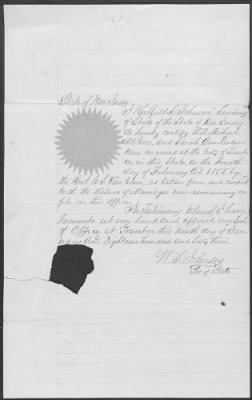 State of New Jersey
I Whitfield S. Johnson Secretary
of State of the State of New Jersey
do hereby certify that Michael
and Sarah Ann
were married at the City of Trent-
on in this State, on the Fourth
day of February A.D. 1855 by
the Revd. as taken from and compared
with the Return of Marriages now remaining on
file in this Office.
In Testimony whereof I have
hereunto set my hand and Official Seal
of Office at Trenton this Ninth day of
A.D. Eighteen hundred and Sixty three
W. S. Johnson
Sec of State